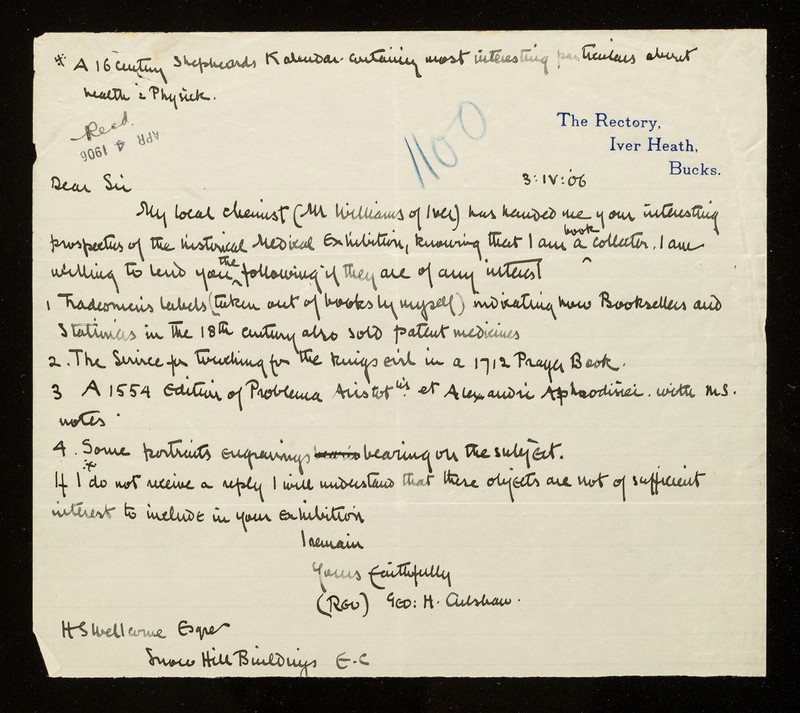 * A 16 century Shepheards Kalendar containing most interesting particulars about
health & Physick.
Recd.
APR 4 1906
1100
The Rectory,
Iver Heath,
Bucks.
3:IV:06
Dear Sir
My local chemist (Mr Williams of Iver) has handed me your interesting
prospectus of the historical Medical Exhibition, knowing that I am a book collector. I am
willing to lend you the following if they are of any interest
1 Tradesmen's labels (taken out of books by myself) indicating how Booksellers and
Stationers in the 18th century also sold patent medicines
2. The Service for touching for the kings evil in a 1712 Prayer Book.
3 A 1554 Edition of Problema Aristotlis et Alexandri Aphrodisiei. with M.S.
notes
4. Some portraits engravings bearing on the subject.
*
If I do not receive a reply I will understand that these objects are not of sufficient
interest to include in your exhibition
I remain
Yours faithfully
(Rev) Geo: H. Culshaw.
H S Wellcome Esqre
Snow Hill Buildings E.C